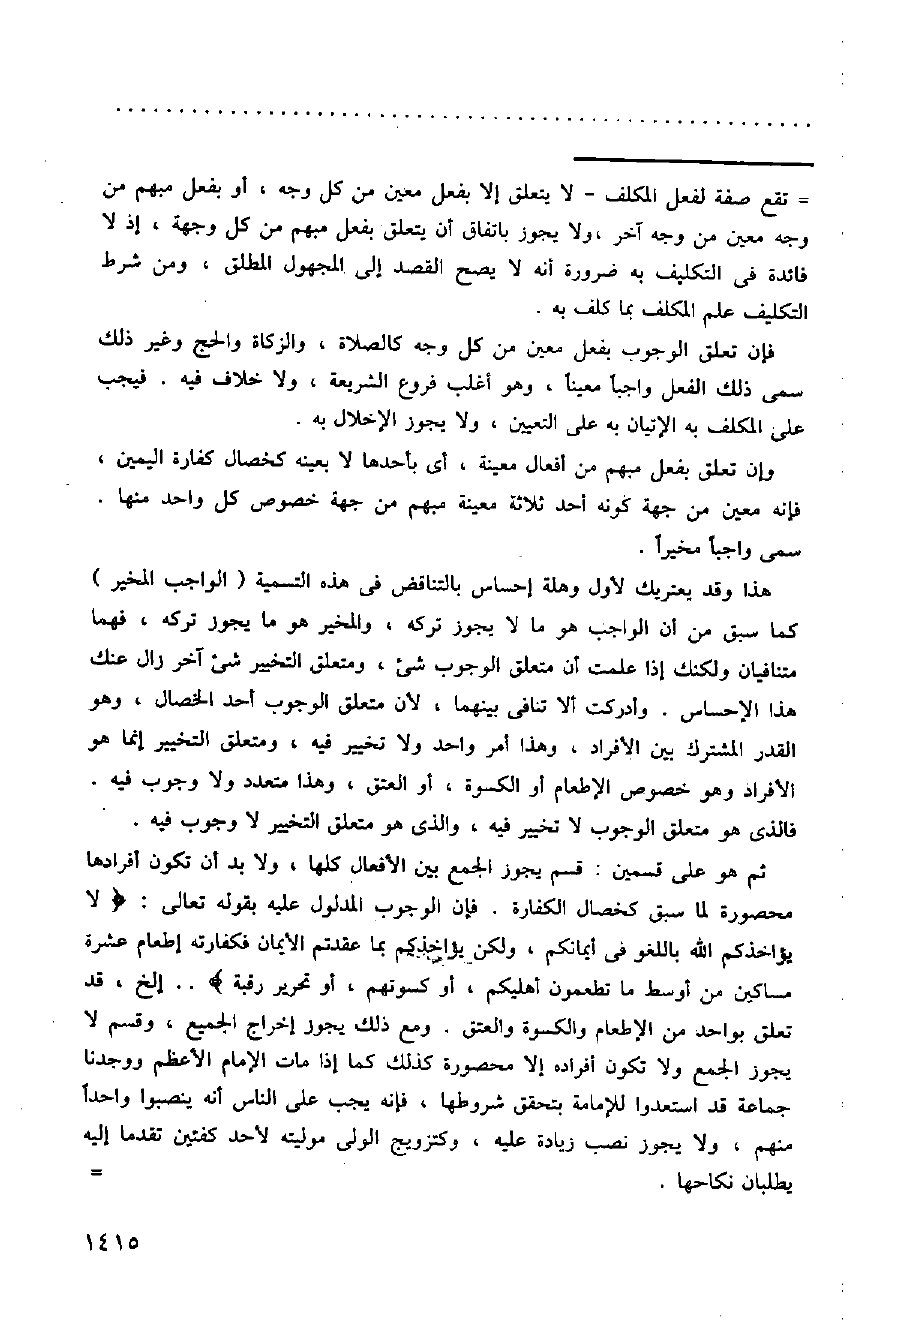 = تقع صفة لفعل المكلف - لا يتعلق إلا بفعل معين من كل وجه ، أو بفعل مبهم من
وجه معين من وجه آخر ،ولا يجوز باتفاق أن يتعلق بفعل مبهم من كل وجهة ، إذ لا
فائدة فى التكليف به ضرورة أنه لا يصح القصد إلى المجهول المطلق ، ومن شرط
التكليف علم المكلف بما كلف به .
فإن تعلق الوجوب بفعل معين من كل وجه كالصلاة ، والزكاة والحج وغير ذلك
سمى ذلك الفعل واجباً معيناً ، وهو أغلب فروع الشريعة ، ولا خلاف فيه . فيجب
على المكلف به الإتيان به على التعيين ، ولا يجوز الإخلال به .
وإن تعلق بفعل مبهم من أفعال معينة ، أى بأحدها لا بعينه كخصال كفارة اليمين ،
فإنه معين من جهة كونه أحد ثلاثة معينة مبهم من جهة خصوص كل واحد منها .
سمى واجباً مخيراً .
هذا وقد يعتريك لأول وهلة إحساس بالتناقض فى هذه التسمية ( الواجب المخير )
كما سبق من أن الواجب هو ما لا يجوز تركه ، والمخير هو ما يجوز تركه ، فهما
متنافيان ولكنك إذا علمت أن متعلق الوجوب شئ ، ومتعلق التخيير شئ آخر زال عنك
هذا الإحساس . وأدركت ألا تنافى بينهما ، لأن متعلق الوجوب أحد الخصال ، وهو
القدر المشترك بين الأفراد ، وهذا أمر واحد ولا تخيير فيه ، ومتعلق التخيير إنما هو
الأفراد وهو خصوص الإطعام أو الكسوة ، أو العتق ، وهذا متعدد ولا وجوب فيه .
فالذى هو متعلق الوجوب لا تخيير فيه ، والذى هو متعلق التخيير لا وجوب فيه .
ثم هو على قسمين : قسم يجوز الجمع بين الأفعال كلها ، ولا بد أن تكون أفرادها
محصورة لما سبق كخصال الكفارة . فإن الوجوب المدلول عليه بقوله تعالى : ﴿ لا
يؤاخذكم الله باللغو فى أيمانكم ، ولكن يؤاخذكم بما عقدتم الأيمان فكفارته إطعام عشرة
مساكين من أوسط ما تطعمون أهليكم ، أو كسوتهم ، أو تحرير رقبة ﴾ .. إلخ ، قد
تعلق بواحد من الإطعام والكسوة والعتق . ومع ذلك يجوز إخراج الجميع ، وقسم لا
يجوز الجمع ولا تكون أفراده إلا محصورة كذلك كما إذا مات الإمام الأعظم ووجدنا
جماعة قد استعدوا للإمامة بتحقق شروطها ، فإنه يجب على الناس أنه ينصبوا واحداً
منهم ، ولا يجوز نصب زيادة عليه ، وكتزويج الولى موليته لأحد كفئين تقدما إليه
يطلبان نكاحها . =
١٤١٥